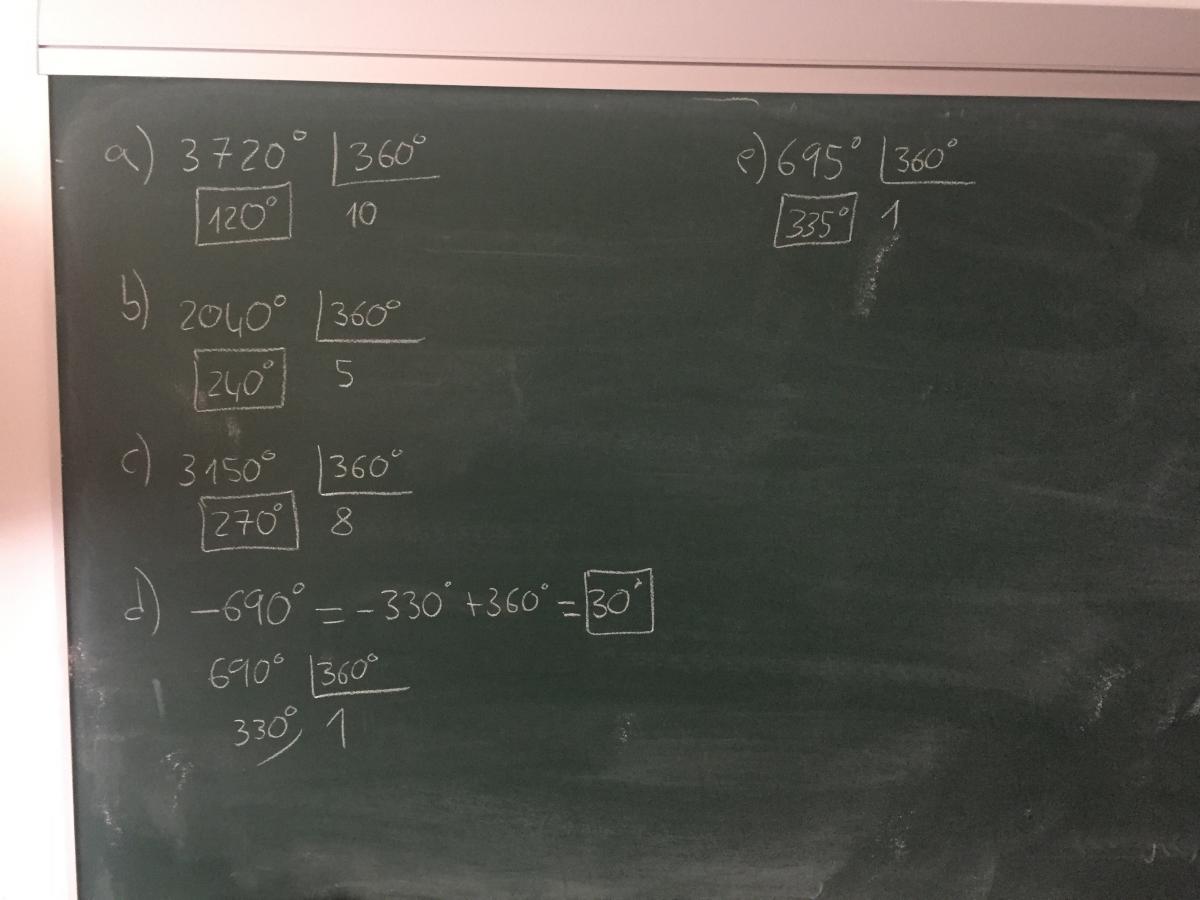 a) 3720° 360°
120° 10
b) 2040° 360°
240° 5
c) 3150° 360°
270° 8
d) -690° = -330° +360° = 30°
690° 360°
330° 1
e) 695° 360°
335° 1